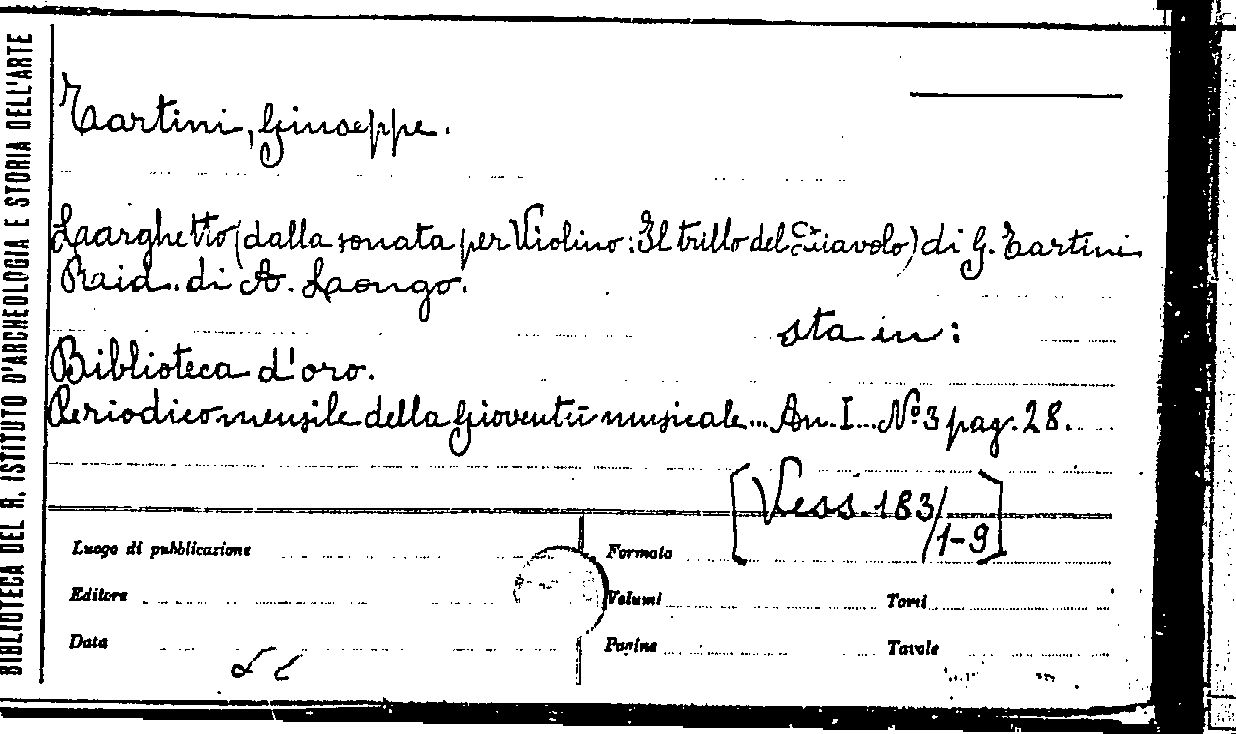 BIBLIOTECA DEL R. ISTITUTO D'ARCHEOLOGIA E STORIA DELL'ARTE
Tartini, Giuseppe.
Laarghetto (dalla sonata per Violino: Il trillo del Diavolo) di G. Tartini
Raid. di A. Laongo.
sta in:
Biblioteca d'oro.
Periodico mensile della Gioventù musicale... An. I... Nº 3 pag. 28.
[Vess. 183/1-9]
Luogo di pubblicazione
Formato
Editore
Volumi
Tomi
Data
Pagine
Tavole